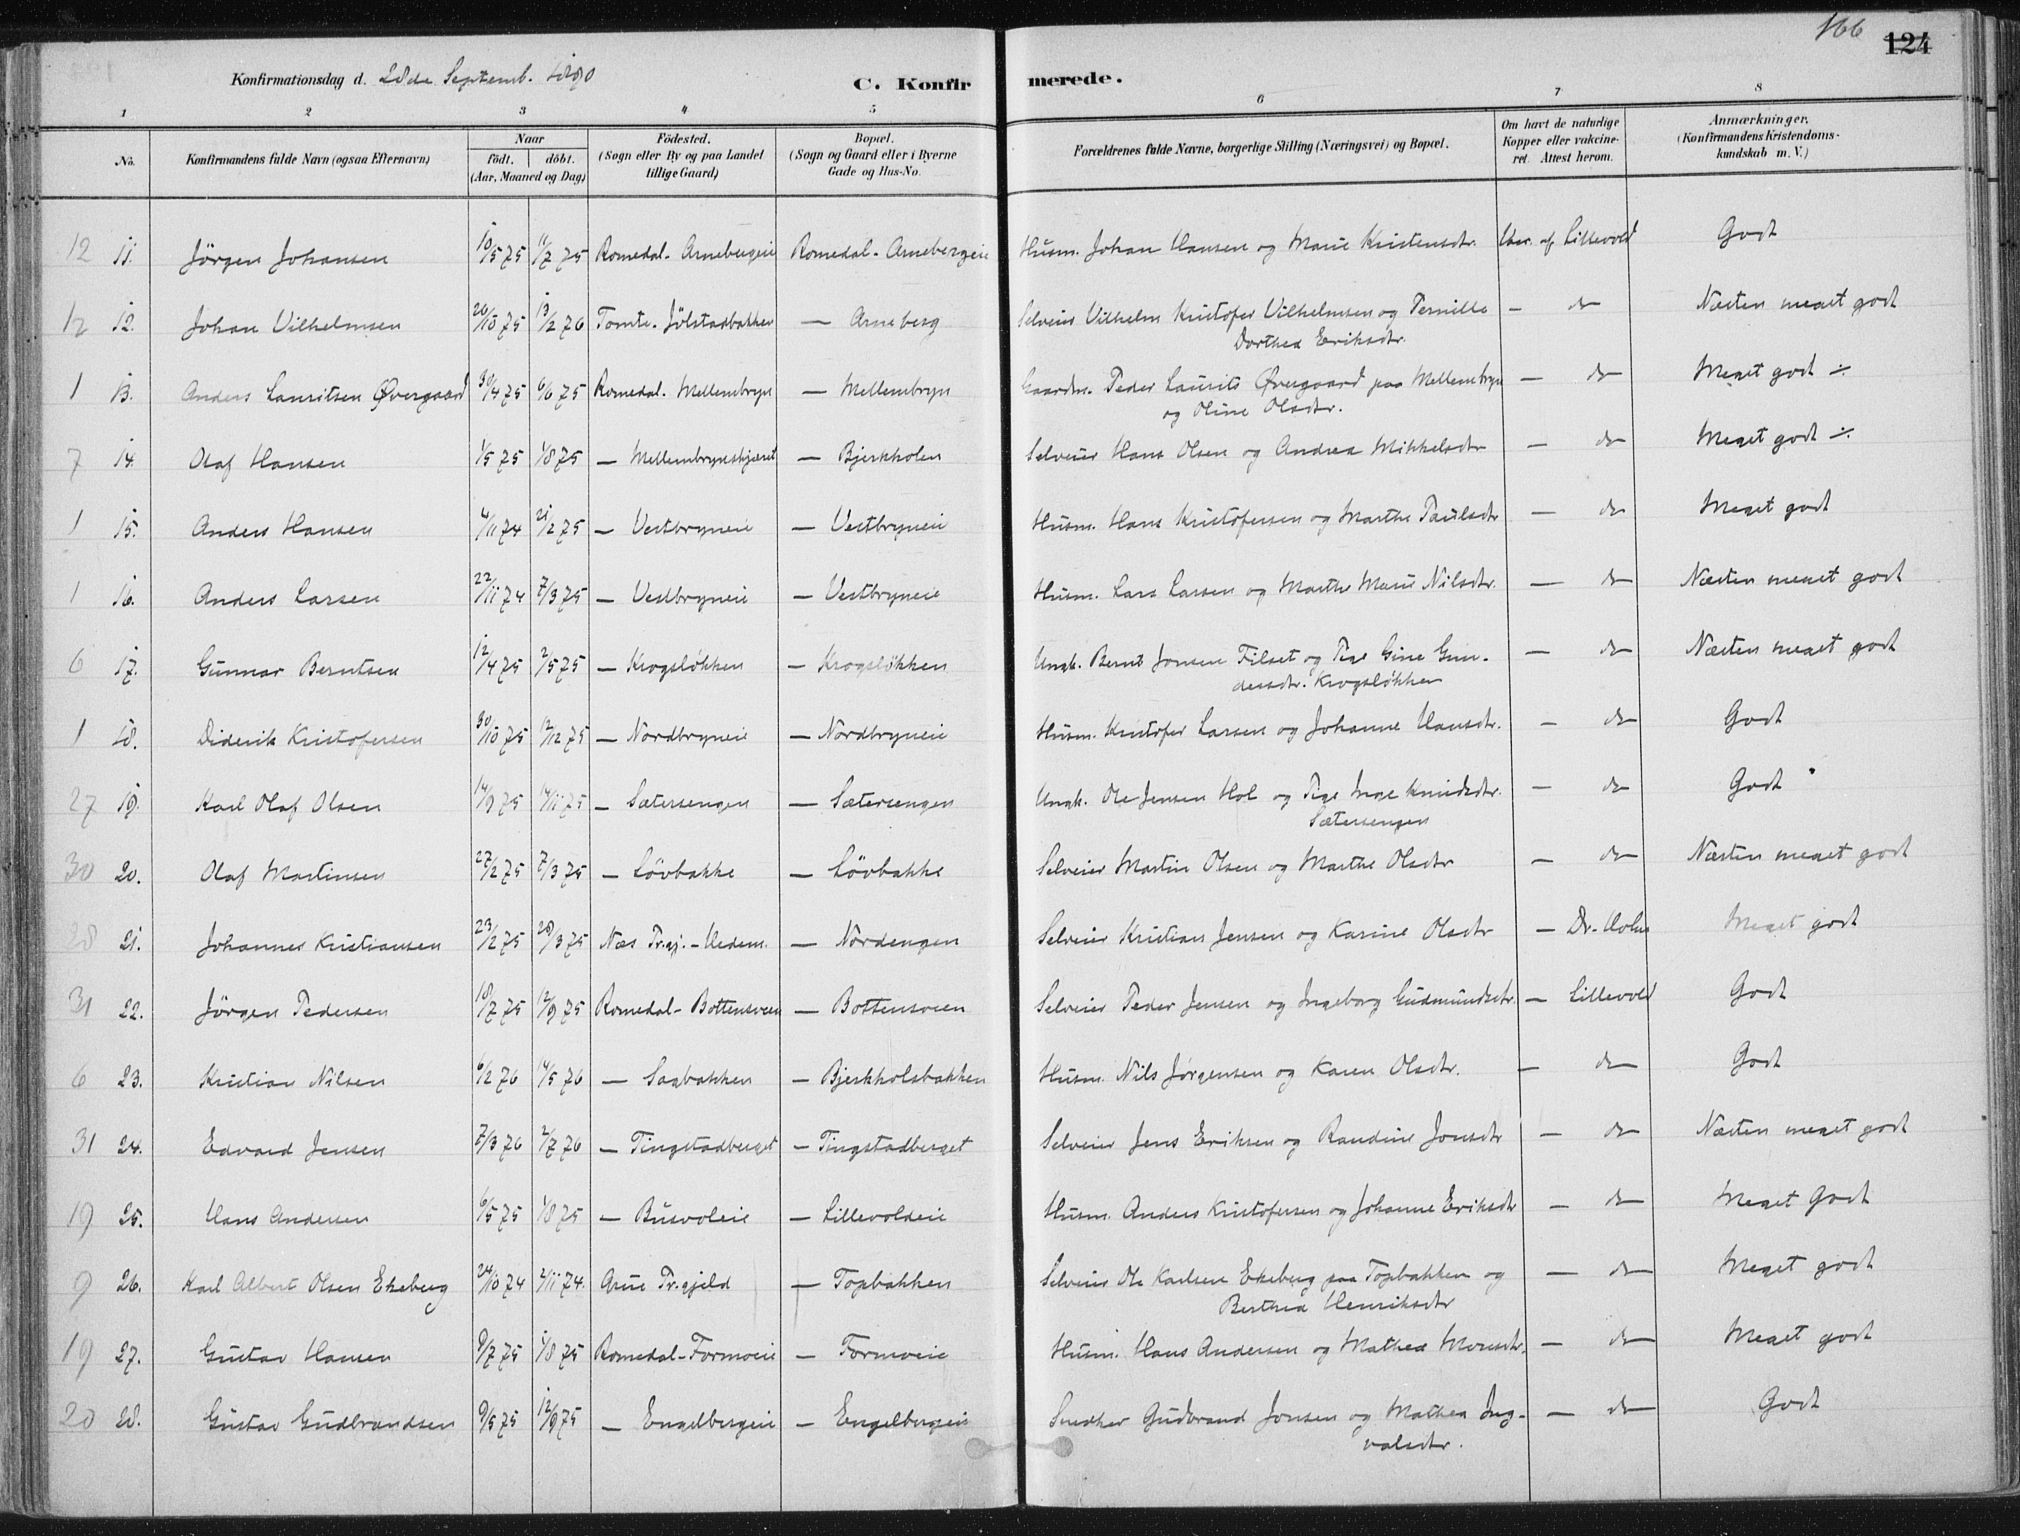 166
124
Konfirmationsdag d. 28de Septemb. 1890
C. Konfirmerede.
1 2 3 4 5 6 7 8
No.
Konfirmandens fulde Navn (ogsaa Efternavn)
Naar
födt. döbt.
(Aar, Maaned og Dag)
Födested.
(Sogn eller By og paa Landet
tillige Gaard)
Bopæl.
(Sogn og Gaard eller i Byerne
Gade og Hus-No.
Forældrenes fulde Navne, borgerlige Stilling (Næringsvei) og Bopæl.
Om havt de naturlige
Kopper eller vakcine-
ret. Attest herom.
Anmærkninger.
(Konfirmandens Kristendoms-
kundskab m. V.)
12 11. Jörgen Johansen 10/5 75 11/7 75 Romedal - Arnebergeie Romedal - Arnebergeie Husm. Johan Hansen og Marie Kristensdtr. Vac. af Lillevold Godt
12 12. Johan Vilhelmsen 26/10 75 13/2 76 Tomte. Jölstadbakken — Arneberg Selveier Vilhelm Kristofer Vilhelmsen og Pernille — do Næsten meget godt
Dorthea Eriksdtr.
1 13. Anders Lauritsen Øvergaard 30/4 75 6/6 75 Romedal. Mellembryn — Mellembryn Gaardm. Peder Laurits Øvergaard paa Mellembryn — do Meget godt ÷
og Oline Olsdtr.
7 14. Olaf Hansen 1/5 75 1/8 75 — Mellembrynskjæret — Bjerkholen Selveier Hans Olsen og Andrea Mikkelsdtr — do Meget godt ÷
1 15. Anders Hansen 4/11 74 21/2 75 — Vestbryneie — Vestbryneie Husm. Hans Kristofersen og Marthe Paulsdtr — do Meget godt
1 16. Anders Larsen 22/11 74 7/3 75 — Vestbryneie — Vestbryneie Husm. Lars Larsen og Marthe Marie Nilsdtr. — do Næsten meget godt
6 17. Gunnar Berntsen 12/4 75 2/5 75 — Krogslökken — Krogslökken Ungk. Bernt Jonsen Filset og Pige Gine Gun-
dersdtr. Krogslökken — do Næsten meget godt
1 18. Diderik Kristofersen 30/10 75 12/12 75 — Nordbryneie — Nordbryneie Husm. Kristofer Larsen og Johanne Hansdtr. — do Godt
27 19. Karl Olaf Olsen 14/9 75 14/11 75 — Sætersengen — Sætersengen Ungk. Ole Jensen Hol og Pige Inge Knudsdtr. — do Godt
Sætersengen
30 20. Olaf Martinsen 27/2 75 7/3 75 — Lövbakke — Lövbakke Selveier Martin Olsen og Marthe Olsdtr — do Næsten meget godt
28 21. Johannes Kristiansen 23/2 75 28/3 75 Næs Pr.gj. - Hedem. — Nordengen Selveier Kristian Jensen og Karine Olsdtr — Dr. Meget godt
31 22. Jörgen Pedersen 18/7 75 12/9 75 Romedal - Bottensveen — Bottensveen Selveier Peder Jensen og Ingeborg Gudmundsdtr. — Lillevold Godt
6 23. Kristian Nilsen 6/2 76 14/5 76 — Sagbakken — Bjerkholsbakken Husm. Nils Jørgensen og Karen Olsdtr. — do Godt
31 24. Edvard Jensen 7/3 76 2/7 76 — Tingstadberget — Tingstadberget Selveier Jens Eriksen og Randine Jonsdtr — do Næsten meget godt
19 25. Hans Andersen 6/5 75 1/8 75 — Busvoleie — Lillevoldeie Husm. Anders Kristofersen og Johanne Eriksdtr — do Meget Godt
9 26. Karl Albert Olsen Ekeberg 24/10 74 2/11 74. Arne Pr.gjeld — Topbakken Selveier Ole Karlsen Ekeberg paa Topbakken og — do Meget godt
Berthea Henriksdtr
19 27. Gustav Hansen 9/7 75 1/8 75 Romedal - Formoeie — Formoeie Husm. Hans Andersen og Mathea Monsdtr. — do Meget godt
20 28. Gustav Gudbrandsen 9/5 75 12/9 75 — Engelbergeie — Engelbergeie Snedker Gudbrand Jonsen og Mathea Ing-
valsdtr. — do Godt